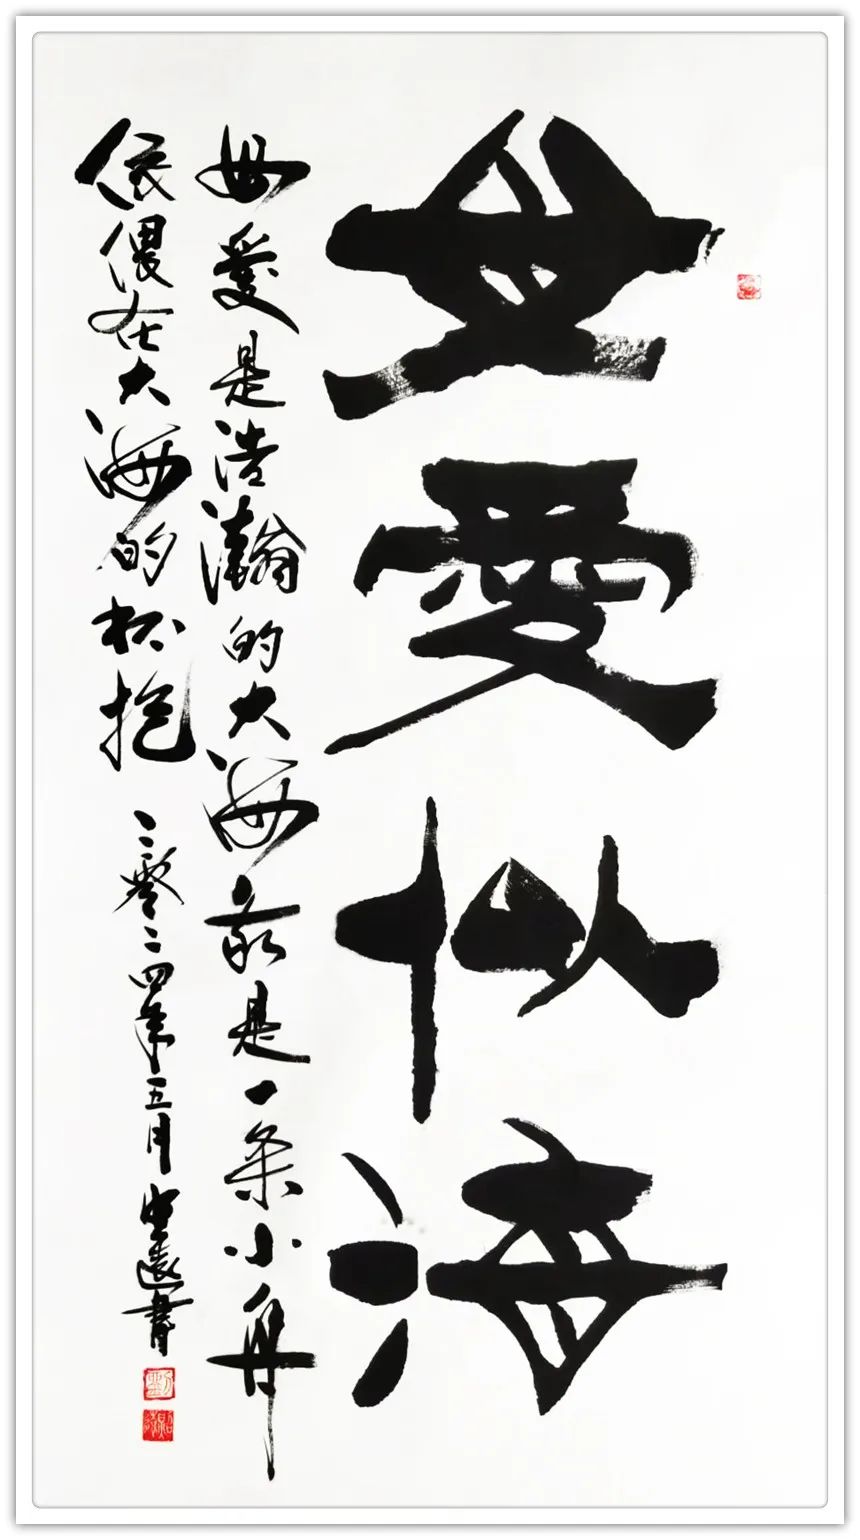 母愛似海
母愛是浩瀚的大海我是一条小舟
依偎在大海的怀抱
二零二四年五月 遠書